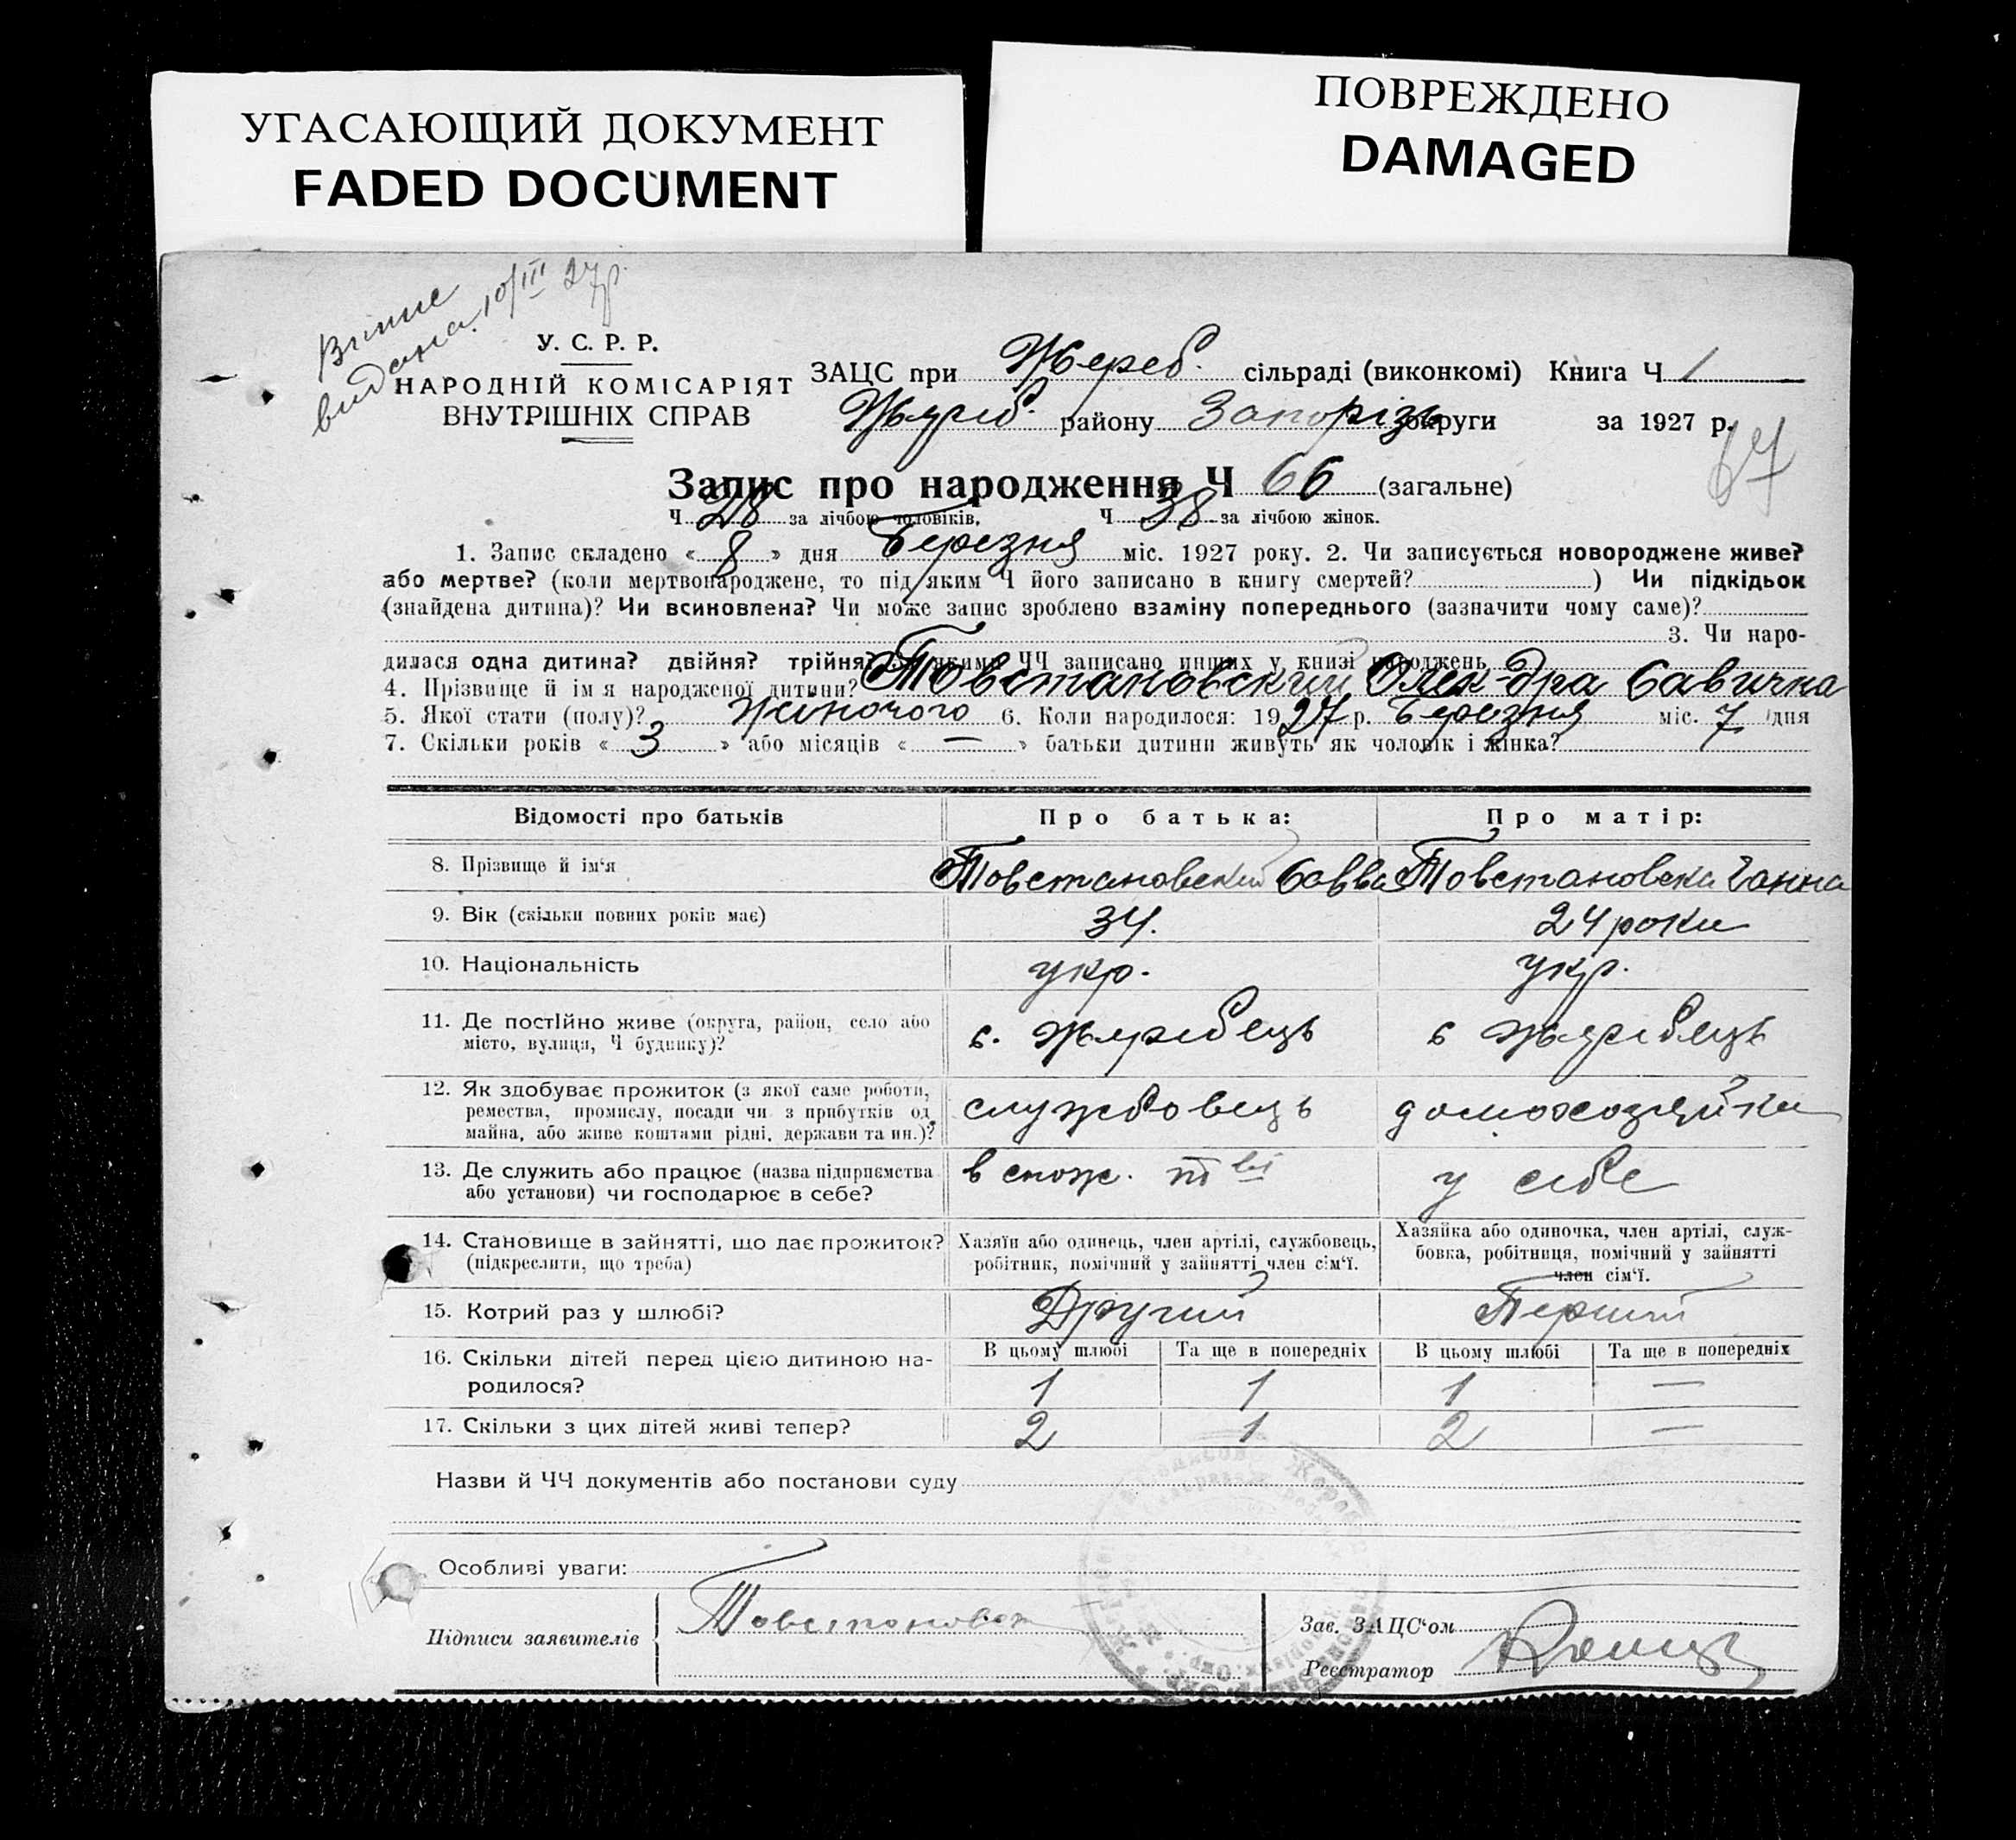 УГАСАЮЩИЙ ДОКУМЕНТ
FADED DOCUMENT
ПОВРЕЖДЕНО
DAMAGED
видана 10/III 27р.
У. С. Р. Р.
НАРОДНІЙ КОМІСАРІЯТ
ВНУТРІШНІХ СПРАВ
ЗАЦС при Жереб. сільраді (виконкомі) Книга Ч 1
Жереб. району Запорізь округи за 1927 р.
67
Запис про народження Ч 66 (загальне)
Ч 28 за лічбою чоловіків, Ч 38 за лічбою жінок.
1. Запис складено « 8 » дня Березня міс. 1927 року. 2. Чи записується новороджене живе?
або мертве? (коли мертвонароджене, то під яким Ч його записано в книгу смертей? ) Чи підкідьок
(знайдена дитина)? Чи всиновлена? Чи може запис зроблено взаміну попереднього (зазначити чому саме)?
3. Чи наро-
дилася одна дитина? двійня? трійня? якими ЧЧ записано инших у книзі народжень
4. Прізвище й ім я народженої дитини? Товстановский Олек-дра Савична
5. Якої стати (полу)? Жіночого 6. Коли народилося: 1927 р. Березня міс. 7 дня
7. Скільки років « 3 » або місяців « — » батьки дитини живуть як чоловік і жінка?
Відомості про батьків Про батька: Про матір:
8. Прізвище й ім'я Товстановский Савва Товстановска Ганна
9. Вік (скільки повних років має) 34. 24 роки
10. Національність укр. укр.
11. Де постійно живе (округа, район, село або
місто, вулиця, Ч будинку)? с. Жеребець с Жеребець
12. Як здобуває прожиток (з якої саме роботи,
ремества, промислу, посади чи з прибутків од
майна, або живе коштами рідні, держави та ин.)? службовець домохозяйка
13. Де служить або працює (назва підприємства
або установи) чи господарює в себе? в спож. т-ві у себе
14. Становище в зайнятті, що дає прожиток?
(підкреслити, що треба)
Хазяїн або одинець, член артілі, службовець,
робітник, помічний у зайнятті член сім'ї.
Хазяйка або одиночка, член артілі, служ-
бовка, робітниця, помічний у зайнятті
член сім'ї.
15. Котрий раз у шлюбі? Другий Перший
16. Скільки дітей перед цією дитиною на-
родилося?
В цьому шлюбі Та ще в попередніх В цьому шлюбі Та ще в попередніх
1 1 1 —
17. Скільки з цих дітей живі тепер? 2 1 2 —
Назви й ЧЧ документів або постанови суду
Особливі уваги:
Підписи заявителів
Зав. ЗАЦС'ом
Реєстратор